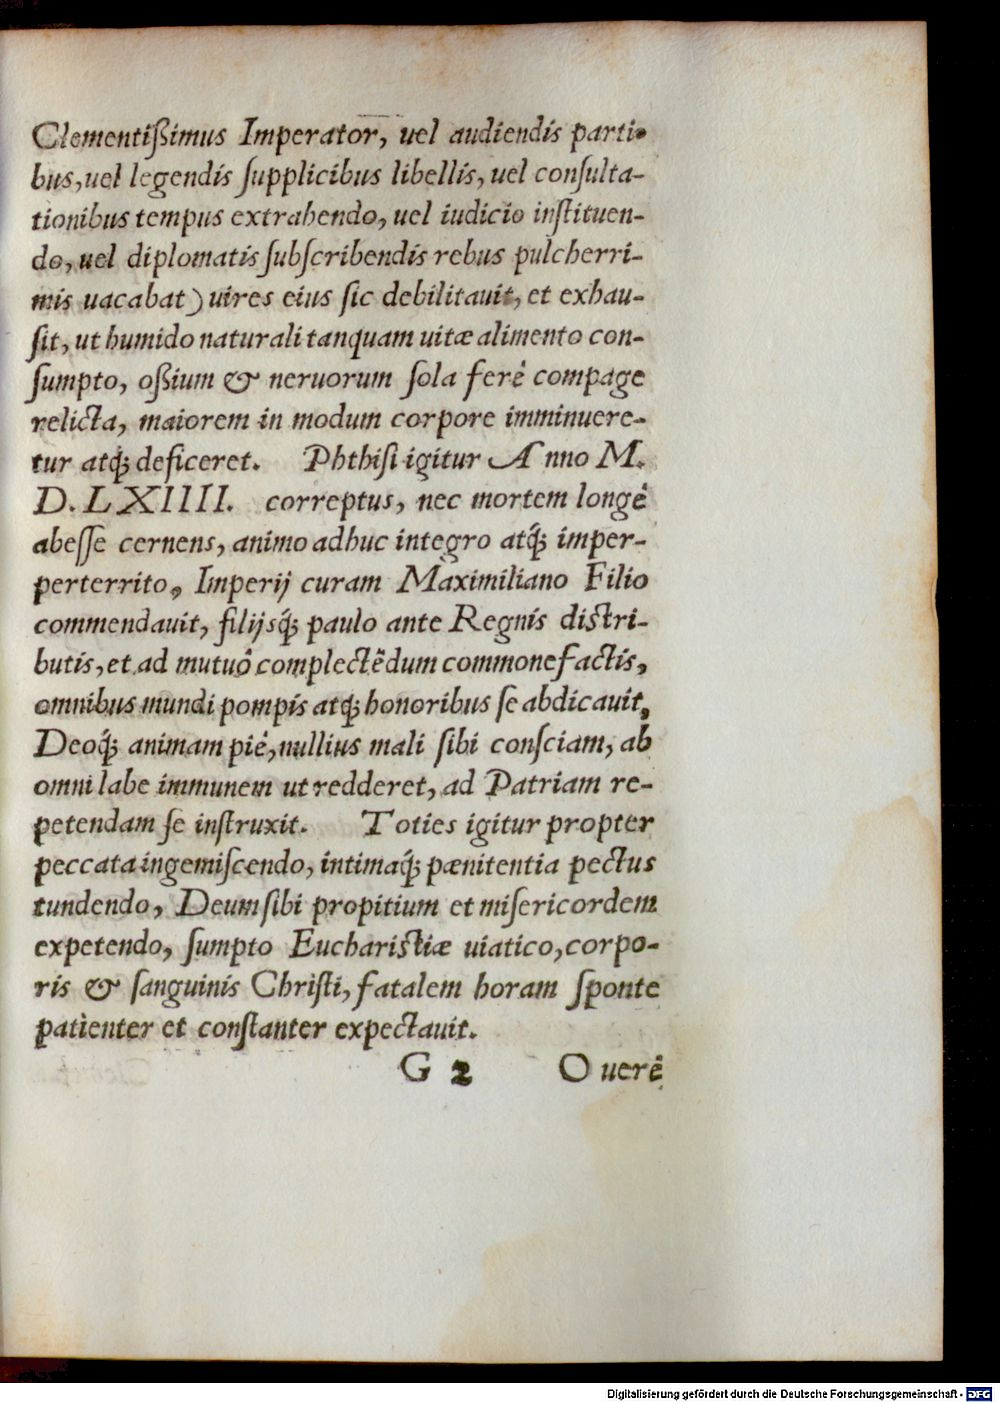 Clementißimus Imperator, uel audiendis parti-
bus, uel legendis ſupplicibus libellis, uel conſulta-
tionibus tempus extrahendo, uel iudicio inſtituen-
do, uel diplomatis ſubſcribendis rebus pulcherri-
mis uacabat) uires eius ſic debilitauit, et exhau-
ſit, ut humido naturali tanquam uitæ alimento con-
ſumpto, oßium & neruorum ſola ferè compage
relicta, maiorem in modum corpore imminuere-
tur atq́; deficeret. Phthiſi igitur Anno M.
D. LXIIII. correptus, nec mortem longè
abeſſe cernens, animo adhuc integro atq́; imper-
perterrito, Imperij curam Maximiliano Filio
commendauit, filijsq́; paulo ante Regnis diſtri-
butis, et ad mutuò complectẽdum commonefactis,
omnibus mundi pompis atq́; honoribus ſe abdicauit,
Deoq́; animam piè, nullius mali ſibi conſciam, ab
omni labe immunem ut redderet, ad Patriam re-
petendam ſe inſtruxit. Toties igitur propter
peccata ingemiſcendo, intimaq́; pænitentia pectus
tundendo, Deum ſibi propitium et miſericordem
expetendo, ſumpto Euchariſtiæ uiatico, corpo-
ris & ſanguinis Chriſti, fatalem horam ſponte
patienter et conſtanter expectauit.
G 2 O uerè
Digitalisierung gefördert durch die Deutsche Forschungsgemeinschaft - DFG